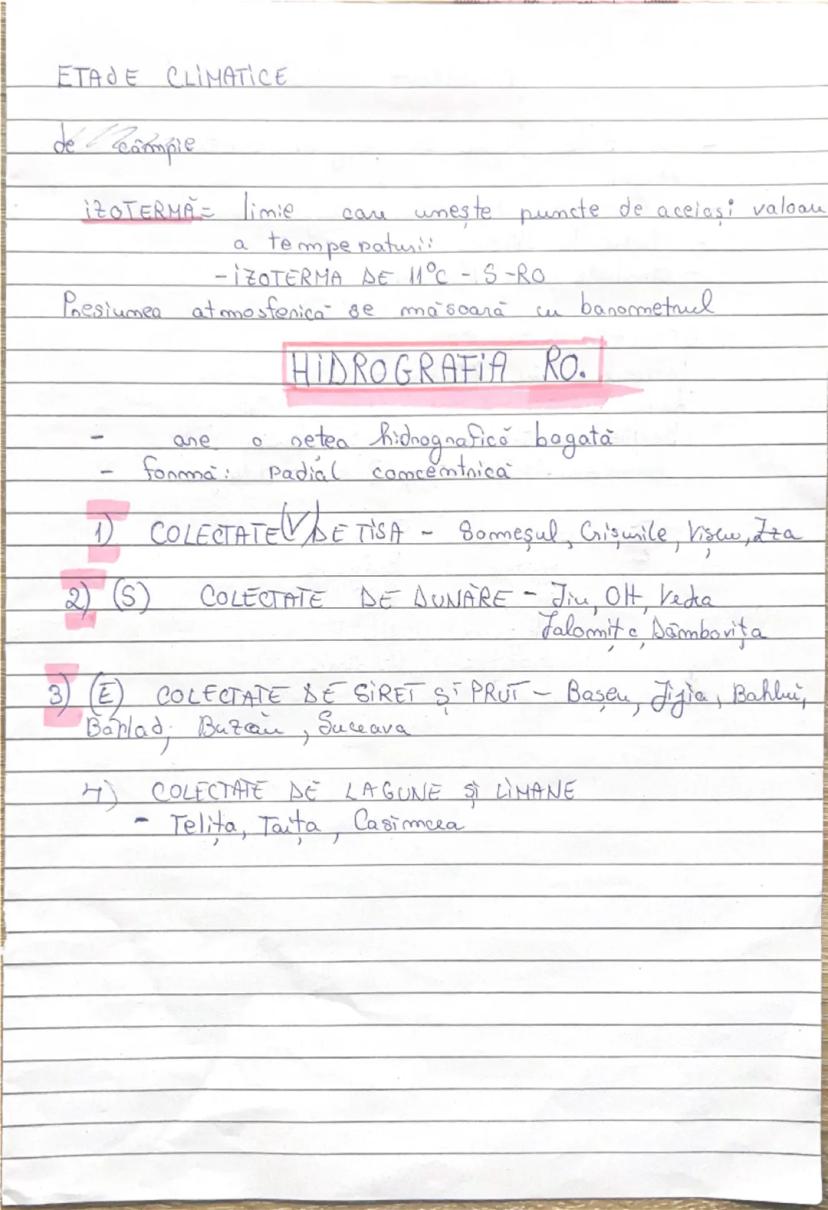 ETAJE CLIMATICE
de câmpie
IZOTERMĂ = linie care unește puncte de aceiași valoare
a temperaturii:
- IZOTERMA DE 11°C - S - RO
Presiunea atmosferică se măsoară cu barometrul
HIDROGRAFIA RO.
- are o rețea hidrografică bogată
- formă: radial concentrică
1) COLECTATE (V) DE TISA - Someșul, Crișurile, Vișeu, Iza
2) (S) COLECTATE DE DUNĂRE - Jiu, Olt, Vedea
Ialomița, Dâmbovița
3) (E) COLECTATE DE SIRET ȘI PRUT - Bașeu, Jijia, Bahlui,
Bârlad, Buzău, Suceava
4) COLECTATE DE LAGUNE ȘI LIMANE
- Telița, Taița, Casimcea